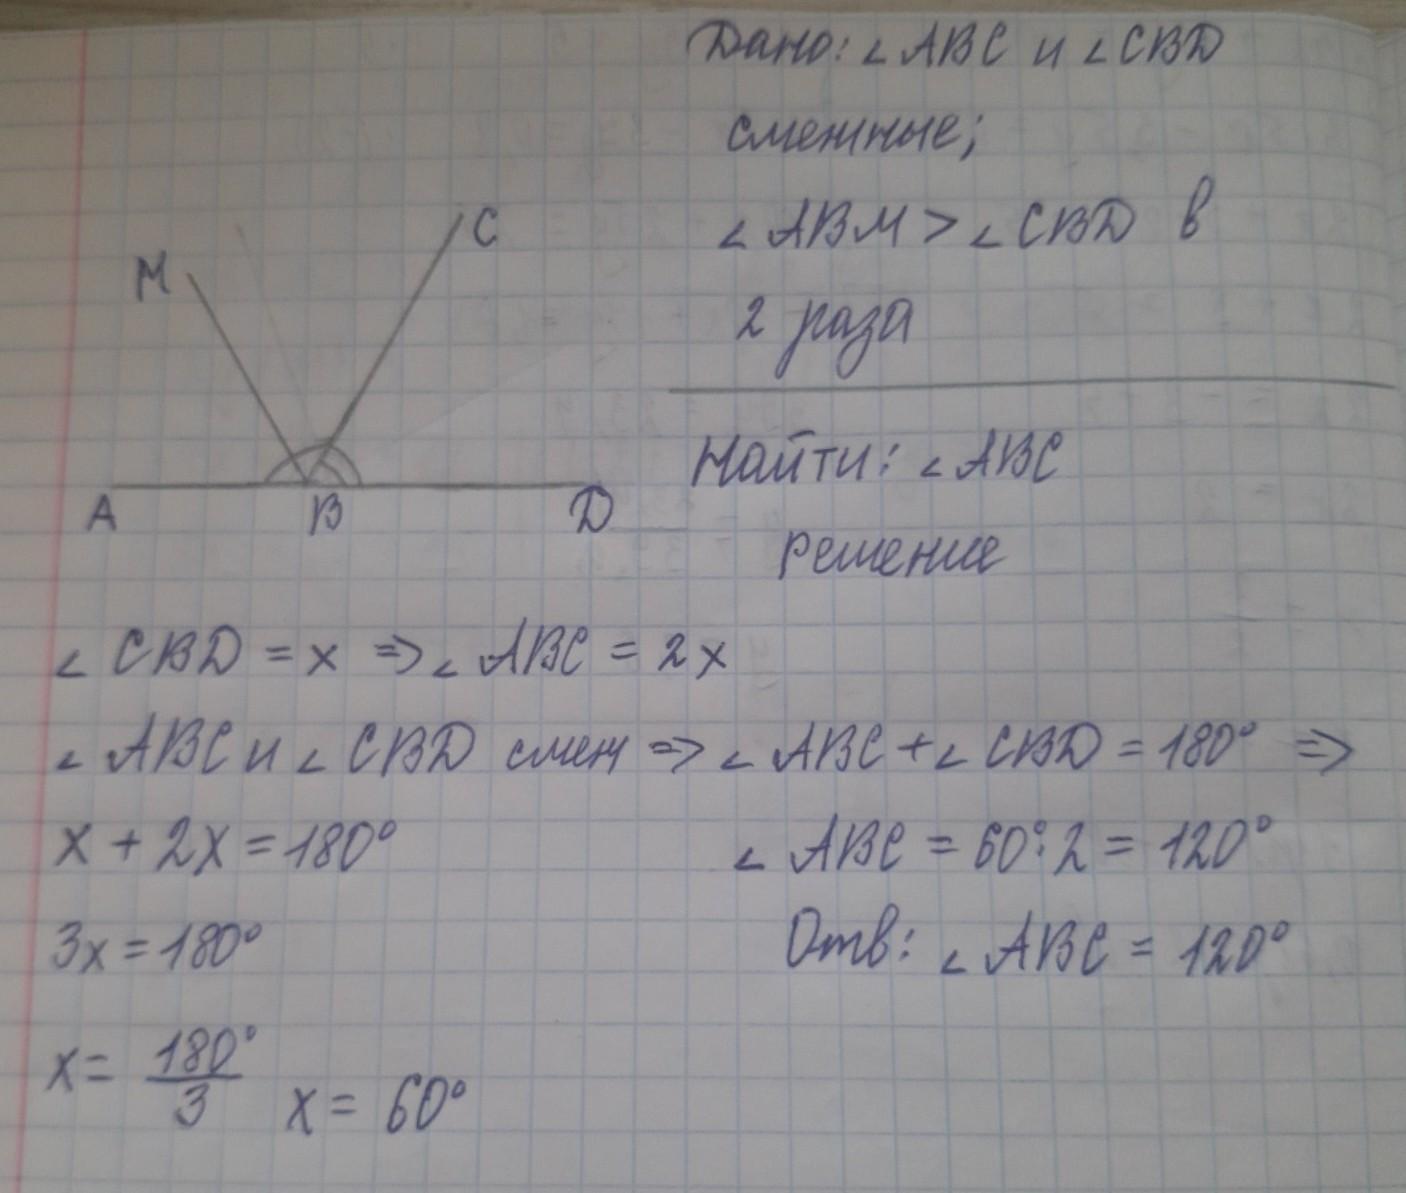 Дано: ∠ABC и ∠CBD
смежные;
∠ABM > ∠CBD в
2 раза
M
C
A
B
D
Найти: ∠ABC
решение
∠CBD = x ⇒ ∠ABC = 2x
∠ABC и ∠CBD смеж ⇒ ∠ABC + ∠CBD = 180° ⇒
x + 2x = 180°
∠ABC = 60°·2 = 120°
3x = 180°
Отв: ∠ABC = 120°
x = 180°/3 x = 60°